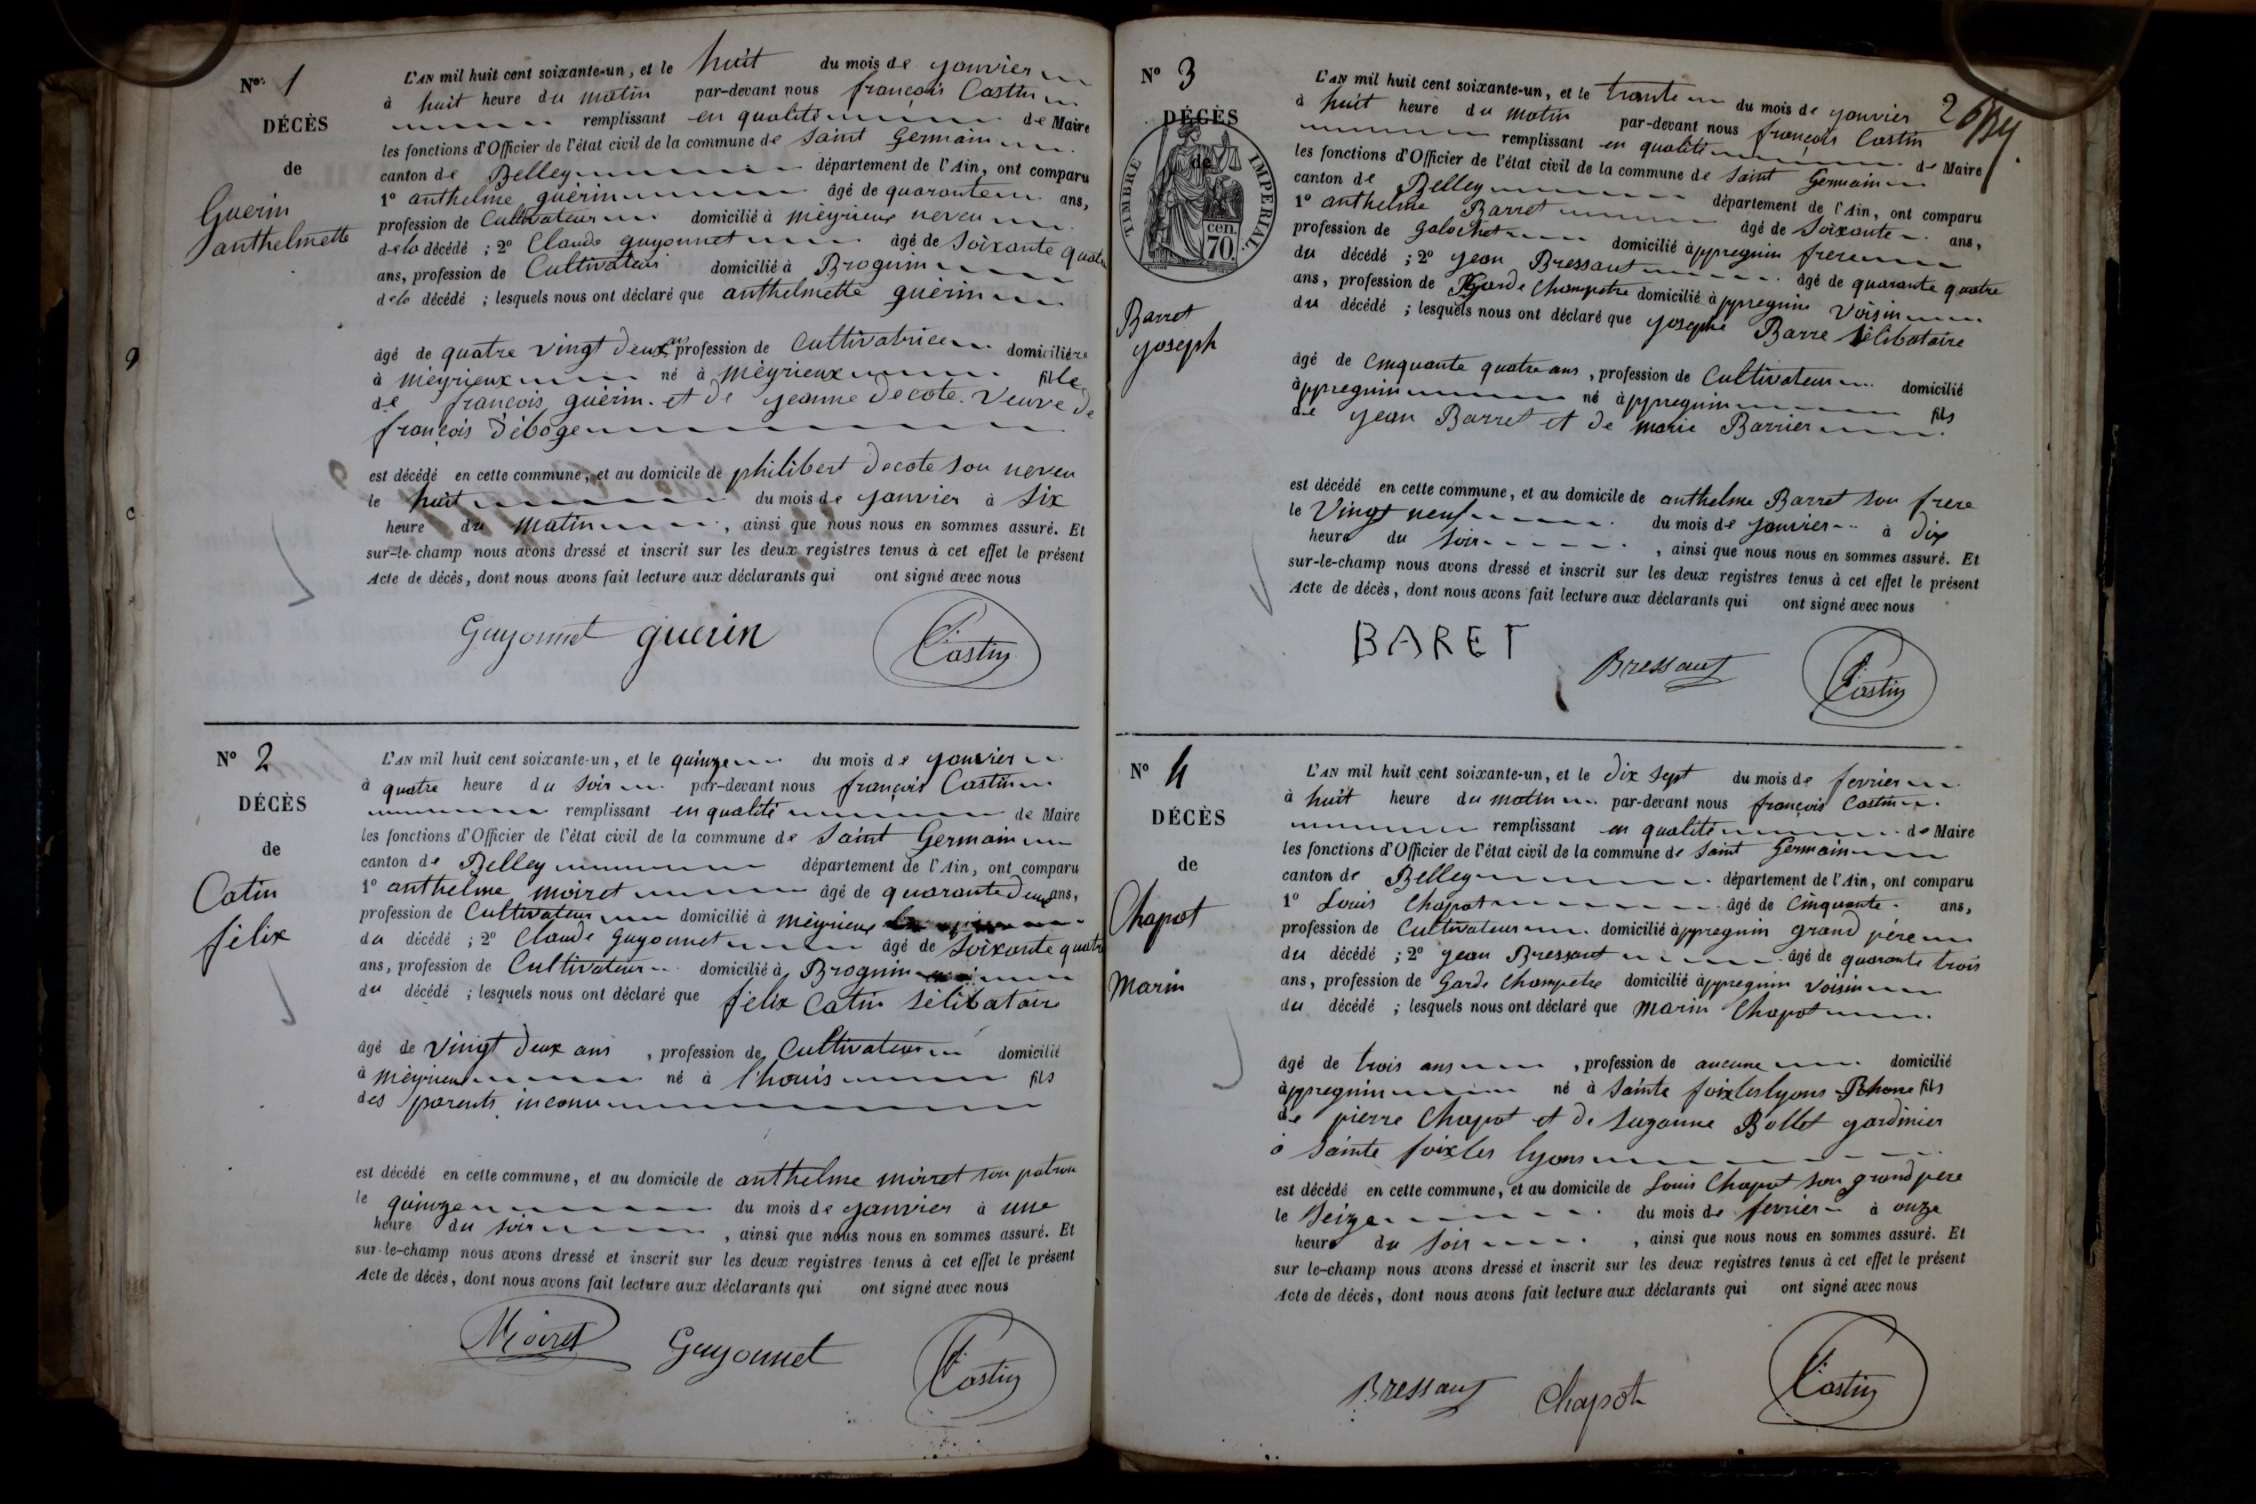 Nº 1
DÉCÈS
de
Guerin
anthelmette
L'AN mil huit cent soixante-un, et le huit du mois de janvier
à huit heure du matin par-devant nous françois Castin
remplissant en qualité de Maire
les fonctions d'Officier de l'état civil de la commune de Saint Germain
canton de Belley département de l'Ain, ont comparu
1º anthelme guérin âgé de quarante ans,
profession de Cultivateur domicilié à mèyrieux neveu
de la décédé ; 2º Claude guyonnet âgé de Soixante quatre
ans, profession de Cultivateur domicilié à Brognin
de la décédé ; lesquels nous ont déclaré que anthelmette guérin
âgé de quatre vingt deux ans profession de Cultivatrice domiciliée
à mèyrieux né à mèyrieux fille
de françois guérin et de jeanne decote. Veuve de
françois Déboge
est décédé en cette commune, et au domicile de philibert decote son neveu
le huit du mois de janvier à six
heure du matin, ainsi que nous nous en sommes assuré. Et
sur-le-champ nous avons dressé et inscrit sur les deux registres tenus à cet effet le présent
Acte de décès, dont nous avons fait lecture aux déclarants qui ont signé avec nous
Guyonnet guerin Castin
Nº 2
DÉCÈS
de
Catin
félix
L'AN mil huit cent soixante-un, et le quinze du mois de janvier
à quatre heure du Soir par-devant nous françois Castin
remplissant en qualité de Maire
les fonctions d'Officier de l'état civil de la commune de Saint Germain
canton de Belley département de l'Ain, ont comparu
1º anthelme moiret âgé de quarante deux ans,
profession de Cultivateur domicilié à mèyrieux
du décédé ; 2º Claude guyonnet âgé de Soixante quatre
ans, profession de Cultivateur domicilié à Brognin
du décédé ; lesquels nous ont déclaré que félix Catin Sélibataire
âgé de vingt deux ans, profession de Cultivateur domicilié
à mèyrieux né à l'houis fils
des parents inconu
est décédé en cette commune, et au domicile de anthelme moiret son patron
le quinze du mois de janvier à une
heure du soir, ainsi que nous nous en sommes assuré. Et
sur-le-champ nous avons dressé et inscrit sur les deux registres tenus à cet effet le présent
Acte de décès, dont nous avons fait lecture aux déclarants qui ont signé avec nous
Moiret Guyonnet Castin
Nº 3
DÉCÈS
de
TIMBRE IMPERIAL.
70 cen.
Barret
joseph
L'AN mil huit cent soixante-un, et le trente du mois de janvier
à huit heure du matin par-devant nous françois Castin
remplissant en qualité de Maire
les fonctions d'Officier de l'état civil de la commune de Saint Germain
canton de Belley département de l'Ain, ont comparu
1º anthelme Barret âgé de Soixante ans,
profession de galochet domicilié à ppregnin frere
du décédé ; 2º jean Bressaut âgé de quarante quatre
ans, profession de Garde Champetre domicilié à ppregnin Voisin
du décédé ; lesquels nous ont déclaré que joseph Barre Sélibataire
âgé de Cinquante quatre ans, profession de Cultivateur domicilié
à ppregnin né à ppregnin fils
de jean Barret et de marie Barrier
est décédé en cette commune, et au domicile de anthelme Barret son frere
le Vingt neuf du mois de janvier à dix
heure du soir, ainsi que nous nous en sommes assuré. Et
sur-le-champ nous avons dressé et inscrit sur les deux registres tenus à cet effet le présent
Acte de décès, dont nous avons fait lecture aux déclarants qui ont signé avec nous
BARET Bressaut Castin
Nº 4
DÉCÈS
de
Chapot
Marin
L'AN mil huit cent soixante-un, et le dix sept du mois de fevrier
à huit heure du matin par-devant nous françois Castin
remplissant en qualité de Maire
les fonctions d'Officier de l'état civil de la commune de Saint Germain
canton de Belley département de l'Ain, ont comparu
1º Louis Chapot âgé de Cinquante ans,
profession de Cultivateur domicilié à ppregnin grand père
du décédé ; 2º jean Bressaut âgé de quarante trois
ans, profession de Garde Champetre domicilié à ppregnin Voisin
du décédé ; lesquels nous ont déclaré que Marin Chapot
âgé de trois ans, profession de aucune domicilié
à ppregnin né à Sainte foix les lyons Rhone fils
de pierre Chapot et de Suzanne Bollet gardinier
à Sainte foix les lyons
est décédé en cette commune, et au domicile de Louis Chapot son grand père
le Seize du mois de fevrier à onze
heure du soir, ainsi que nous nous en sommes assuré. Et
sur le-champ nous avons dressé et inscrit sur les deux registres tenus à cet effet le présent
Acte de décès, dont nous avons fait lecture aux déclarants qui ont signé avec nous
Bressaut Chapot Castin